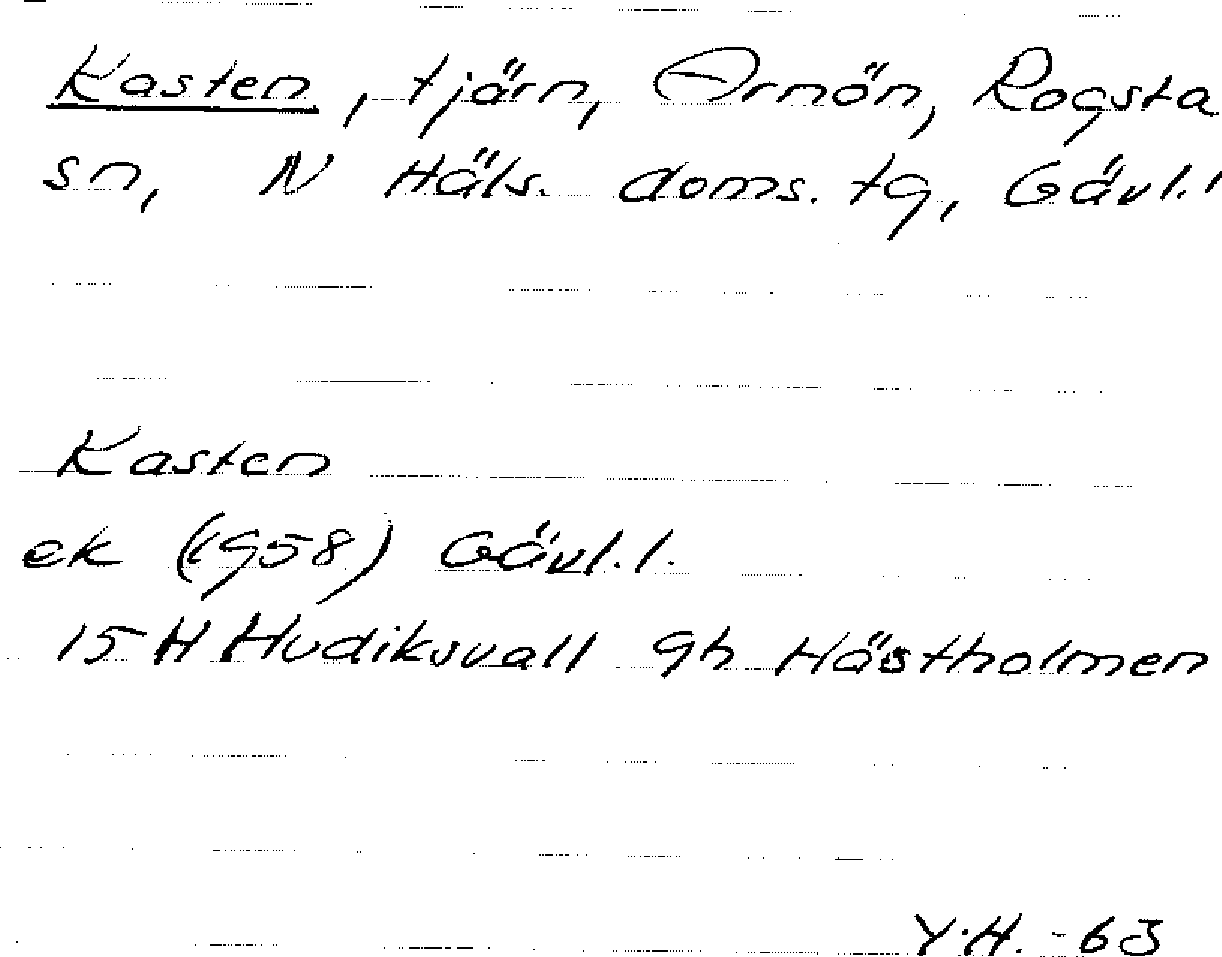 Kasten, tjärn, Arnön, Rogsta
sn, N Häls. doms. tg, Gävl.l
Kasten
ek (1958) Gävl.l.
15 H Hudiksvall 9h Hästholmen
Y.H. - 63